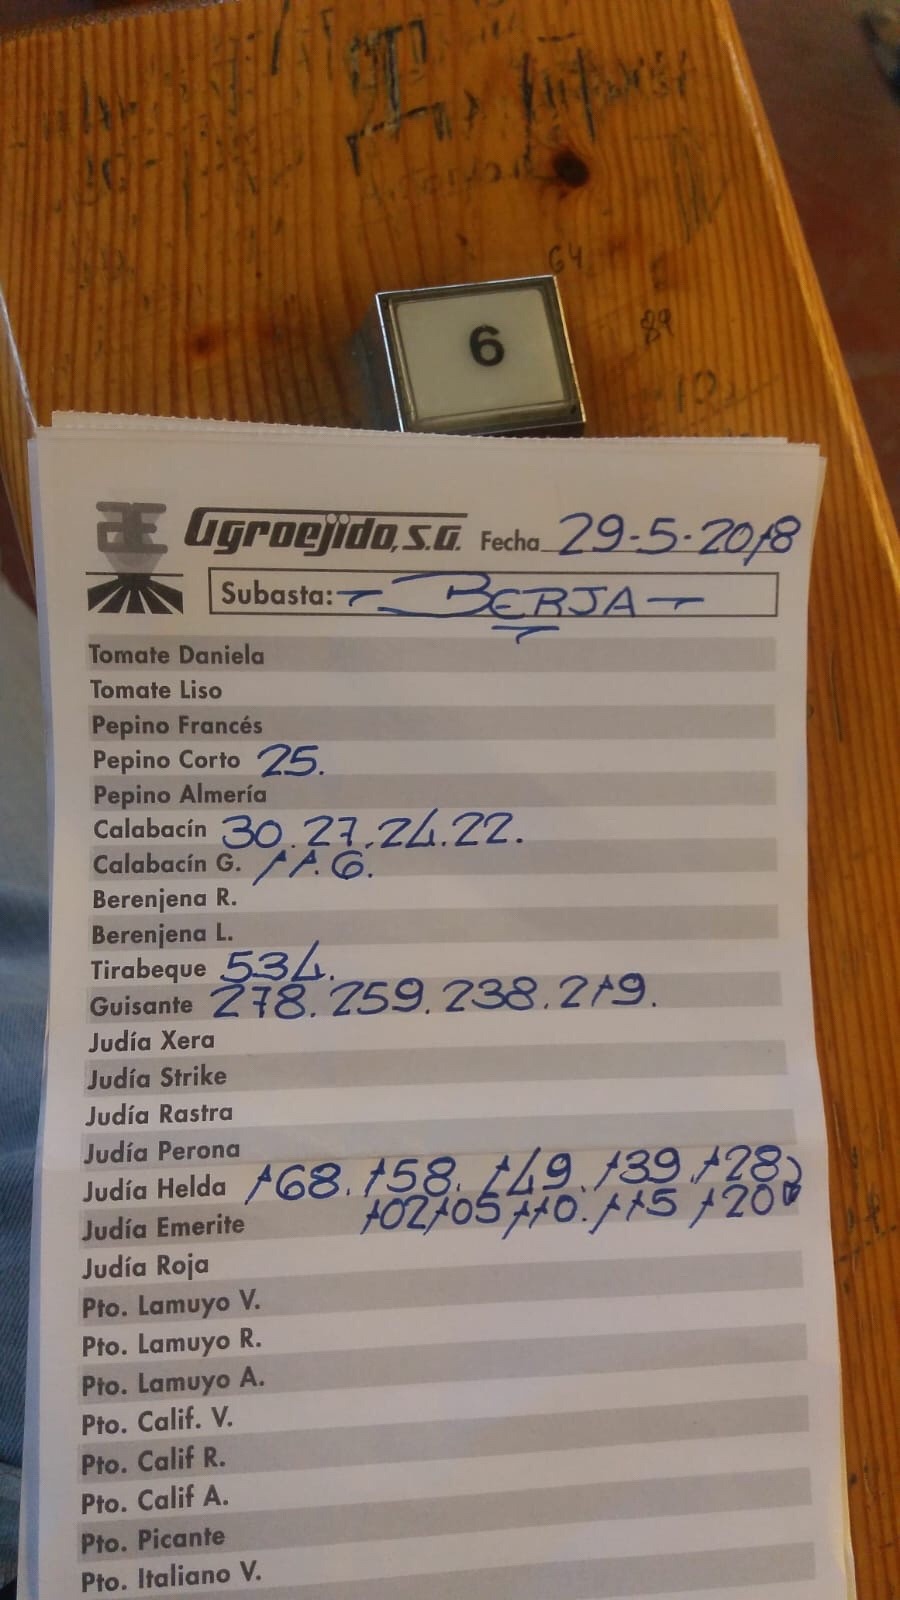 6
64
89
Agroejido, S.A. Fecha 29-5-2018
Subasta: - BERJA -
Tomate Daniela
Tomate Liso
Pepino Francés
Pepino Corto 25.
Pepino Almería
Calabacín 30.27.24.22.
Calabacín G. 11.6.
Berenjena R.
Berenjena L.
Tirabeque 534.
Guisante 278.259.238.219.
Judía Xera
Judía Strike
Judía Rastra
Judía Perona
Judía Helda 168.158.149.139.128
Judía Emerite 102 105 110.115 120
Judía Roja
Pto. Lamuyo V.
Pto. Lamuyo R.
Pto. Lamuyo A.
Pto. Calif. V.
Pto. Calif R.
Pto. Calif A.
Pto. Picante
Pto. Italiano V.